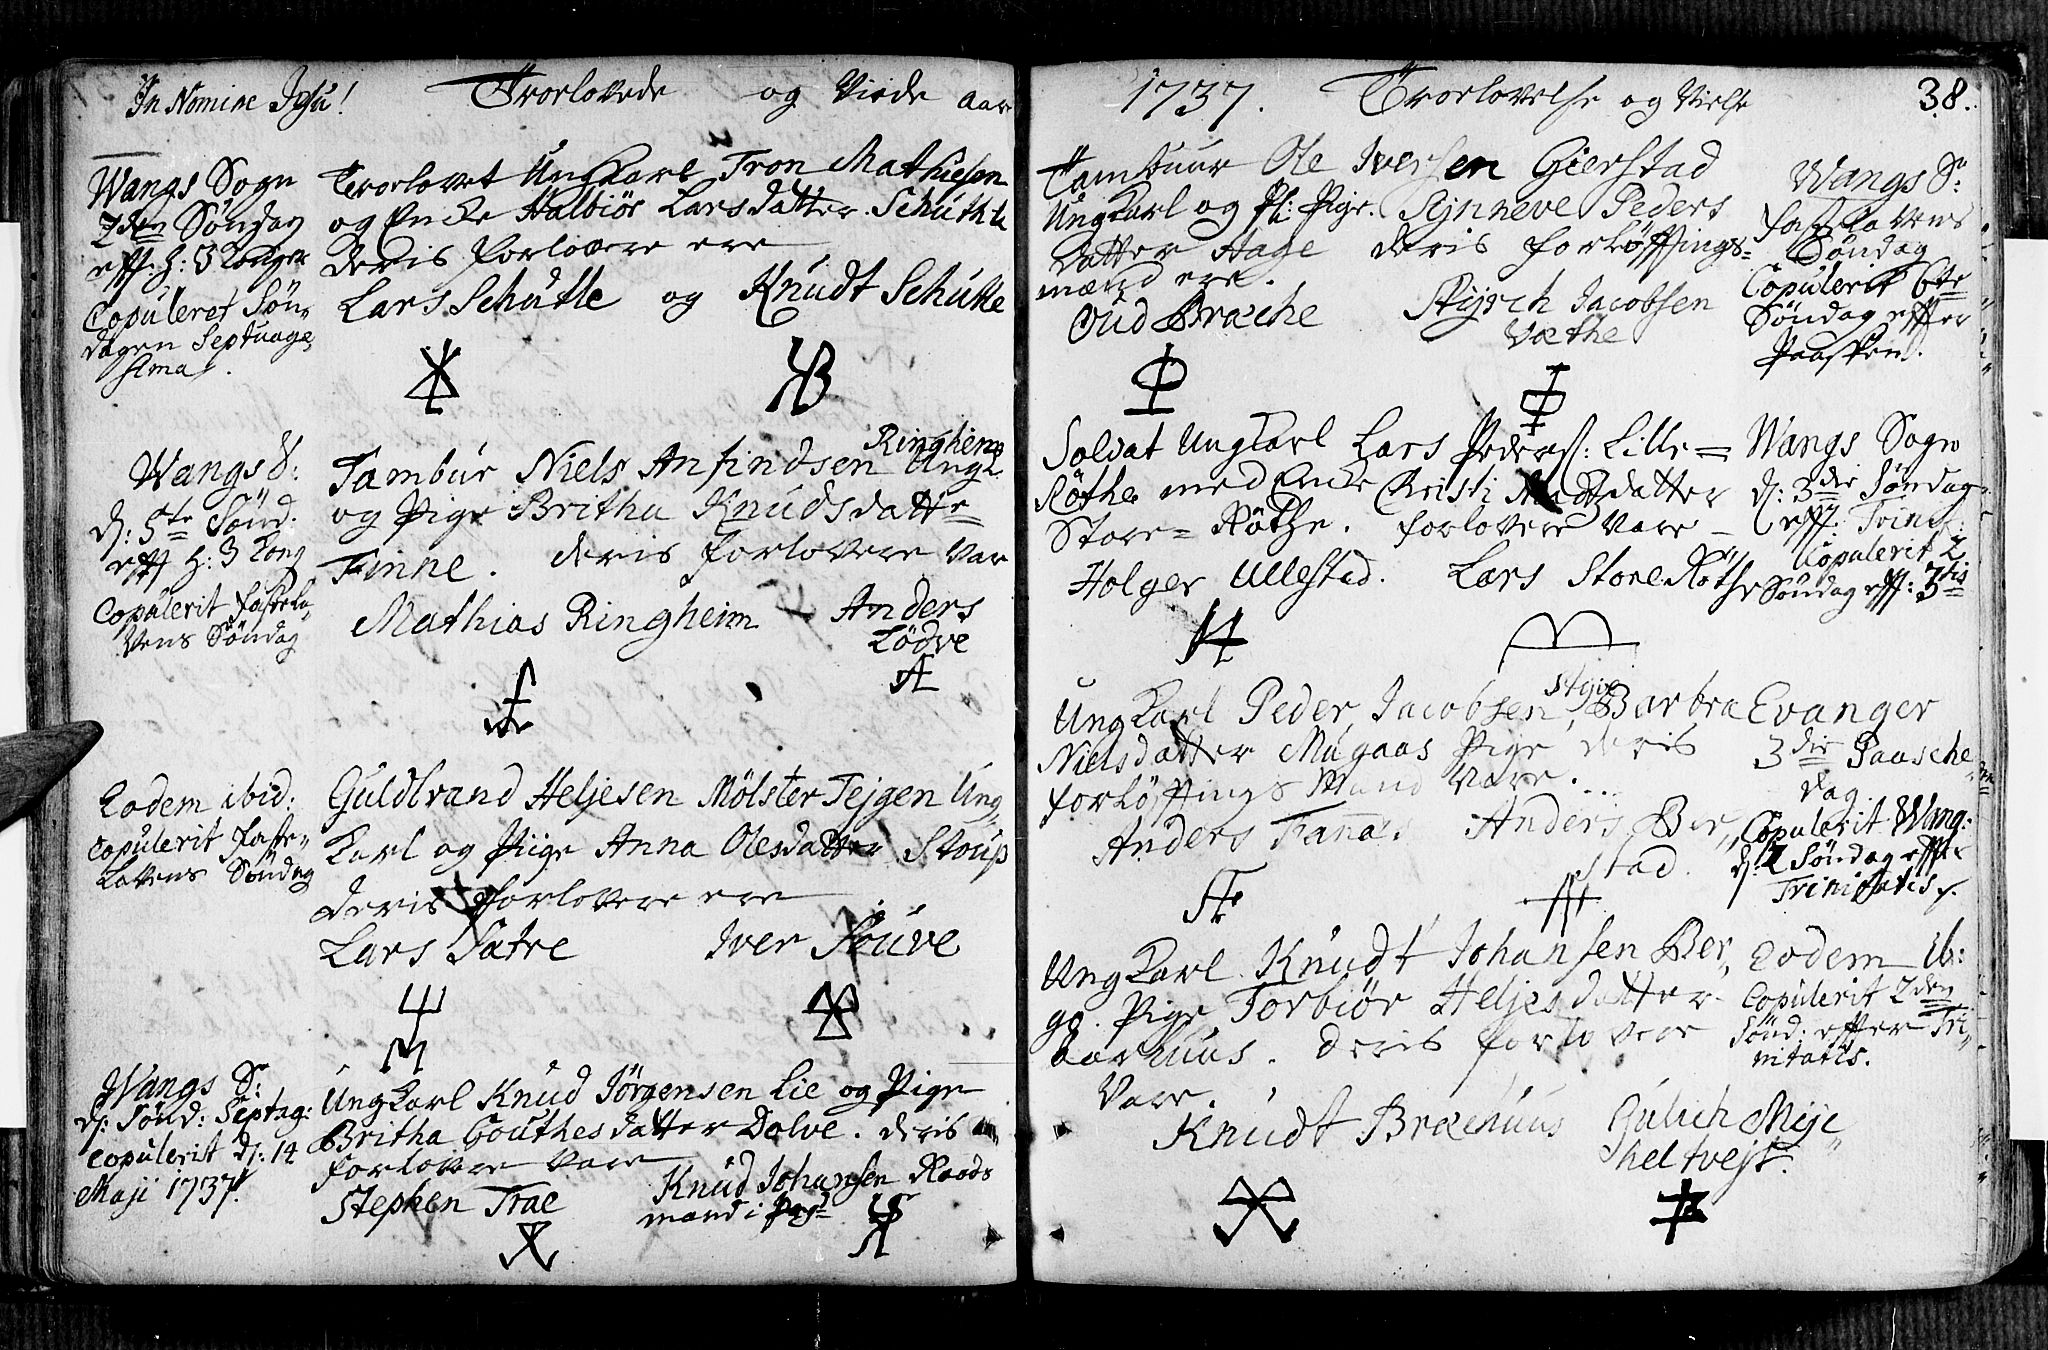 In Nomine Jesu! Troelovede og Viede aar
Wangs Sogn
2den Søndag
eft: H: 3 Konger
Copuleret Søn,
dagen Septuage,
sima.
Troelovet UngKarl Tron Mathiesen
og Encke Halbiør Larsdatter Schutle
deris forlovere ere
Lars Schutle og Knudt Schutle
Wangs S:
d: 5te Sønd.
eft H: 3 Kong
Copulerit faste la,
vens Søndag
Ringheim
Tambur Niels Anfindsen Ungk
og Pige Britha Knudsdatte=
Finne. deris forlovere var
Mathias Ringheim Anders
Lødve
Eodem ibid:
Copulerit faste,
lavens Søndag
Guldbrand Heljesen Mølster Tejgen Ung,
Karl og Piige Anna Olesdatter Stoup
deris forlovere ere
Lars Sætre Iver Souve
Wangs S:
d: Sønd: Septag:
Copulerit d: 14
Maji 1737.
UngKarl Knud Jørgensen Lie og Pige
Britha Gouthesdatter Dolve. deris
forlovere vare
Stephen Trae Knud Johansen Raads
mand i
1737. Troelovelse og Vielse 38.
Tambuur Ole Iversen Gierstad
UngKarl og Pl: Pige. Synneve Peders
datter Hage deris forløfftings=
mænd ere.
Oud Bræche Styrch Jacobsen
Væthe
Wangs S:
fastelavens
Søndag
Copulerit 6te
Søndag effter
Paasken.
Soldat UngKarl Lars Peders: Lille=
Røthe med Encke Christi datter
Store=Røthe. forlovere vare
Holger Ullestad. Lars Store Røthe
Wangs Sogn
d: 3die Søndag
eft. Trinit:
Copulerit 2
Søndag eft: 3tis
Styve
UngKarl Peder Jacobsen, Barbra
Nielsdatter Mugaas Pige deris
forløfftings Mænd vare.
Anders Fannes Anders Ber,
stad.
Evanger
3die Paasche
dag
Copulerit Wang:
d: 2 Søndag effter
Trinitatis.
UngKarl Knudt Johansen Ber,
ge. Pige Torbiør Heljesdatter
Aarhuus. deris forlovere
vare.
Knudt Bræchuus Gulich Mije
theltvejt.
Eodem ib:
Copulerit 2den
Sønd: effter Tri,
nitatis.